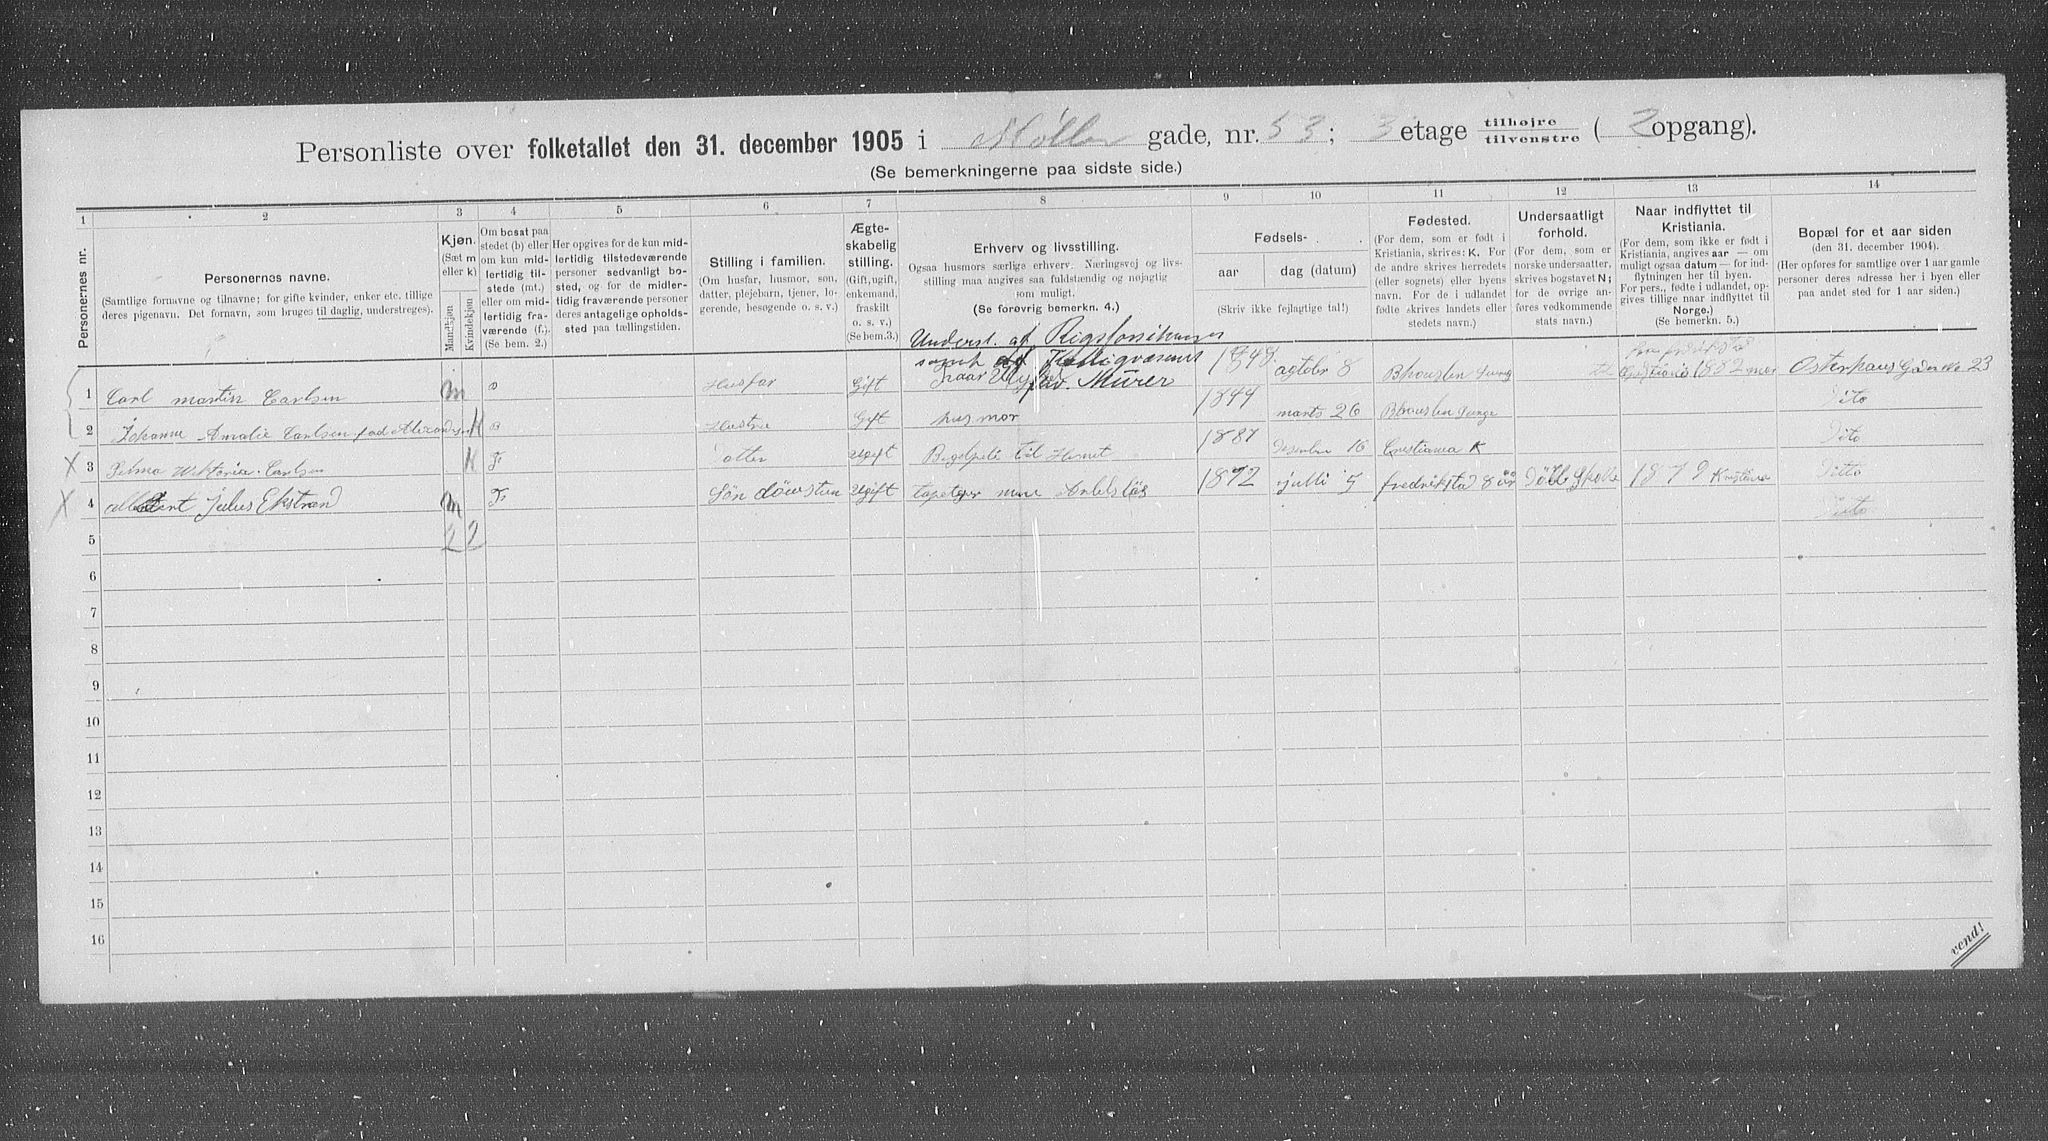 Personliste over folketallet den 31. december 1905 i Møller gade, nr. 53; 3 etage tilhøjre tilvenstre (2 opgang).
(Se bemerkningerne paa sidste side.)
1 2 3 4 5 6 7 8 9 10 11 12 13 14
Personernes nr.
Personernes navne.
(Samtlige fornavne og tilnavne; for gifte kvinder, enker etc. tillige
deres pigenavn. Det fornavn, som bruges til daglig, understreges).
Kjøn.
(Sæt m
eller k)
Mandkjøn
Kvindekjøn
Om bosat paa
stedet (b) eller
om kun mid-
lertidig til-
stede (mt.)
eller om mid-
lertidig fra-
værende (f.).
(Se bem. 2.)
Her opgives for de kun mid-
lertidig tilstedeværende
personer sedvanligt bo-
sted, og for de midler-
tidig fraværende personer
deres antagelige opholds-
sted paa tællingstiden.
Stilling i familien.
(Om husfar, husmor, søn,
datter, plejebarn, tjener, lo-
gerende, besøgende o. s. v.)
Ægte-
skabelig
stilling.
(Gift, ugift,
enkemand,
fraskilt
o. s. v.)
(Se bem.3.)
Erhverv og livsstilling.
Ogsaa husmors særlige erhverv. Næringsvej og livs-
stilling maa angives saa fuldstændig og nøjagtig
som muligt.
(Se forøvrig bemerkn. 4.)
Fødsels-
aar
dag (datum)
(Skriv ikke fejlagtige tal!)
Fødested.
(For dem, som er født i
Kristiania, skrives: K. For
de andre skrives herredets
(eller sognets) eller byens
navn. For de i udlandet
fødte skrives landets eller
stedets navn.)
Undersaatligt
forhold.
(For dem, som er
norske undersaatter,
skrives bogstavet N;
for de øvrige an-
føres vedkommende
stats navn.)
Naar indflyttet til
Kristiania.
(For dem, som ikke er født i
Kristiania, angives aar — om
muligt ogsaa datum — for ind-
flytningen her til byen.
For pers., fødte i udlandet, op-
gives tillige naar indflyttet til
Norge.)
(Se bemerkn. 5.)
Bopæl for et aar siden
(den 31. december 1904).
(Her opføres for samtlige over 1 aar gamle
personer deres adresse her i byen eller
paa andet sted for 1 aar siden.)
Underst. af
samt af Fattigvæsenet
1 Carl martin Carlsen m B Husfar Gift Murer 1848 8 1882
23
2 Johanne Amalie Carlsen K B Hustru Gift husmor 1844 marts 26 Dito
3 Wiktoria Carlsen K F Ugift til 1887 16 K Dito
X
4 Julius Ekstrand m F Søn Ugift 1872 julli 5 fredrikstad 1879 Kristiania Ditto
X
5 2 2 Dito
6
7
8
9
10
11
12
13
14
15
16
vend!